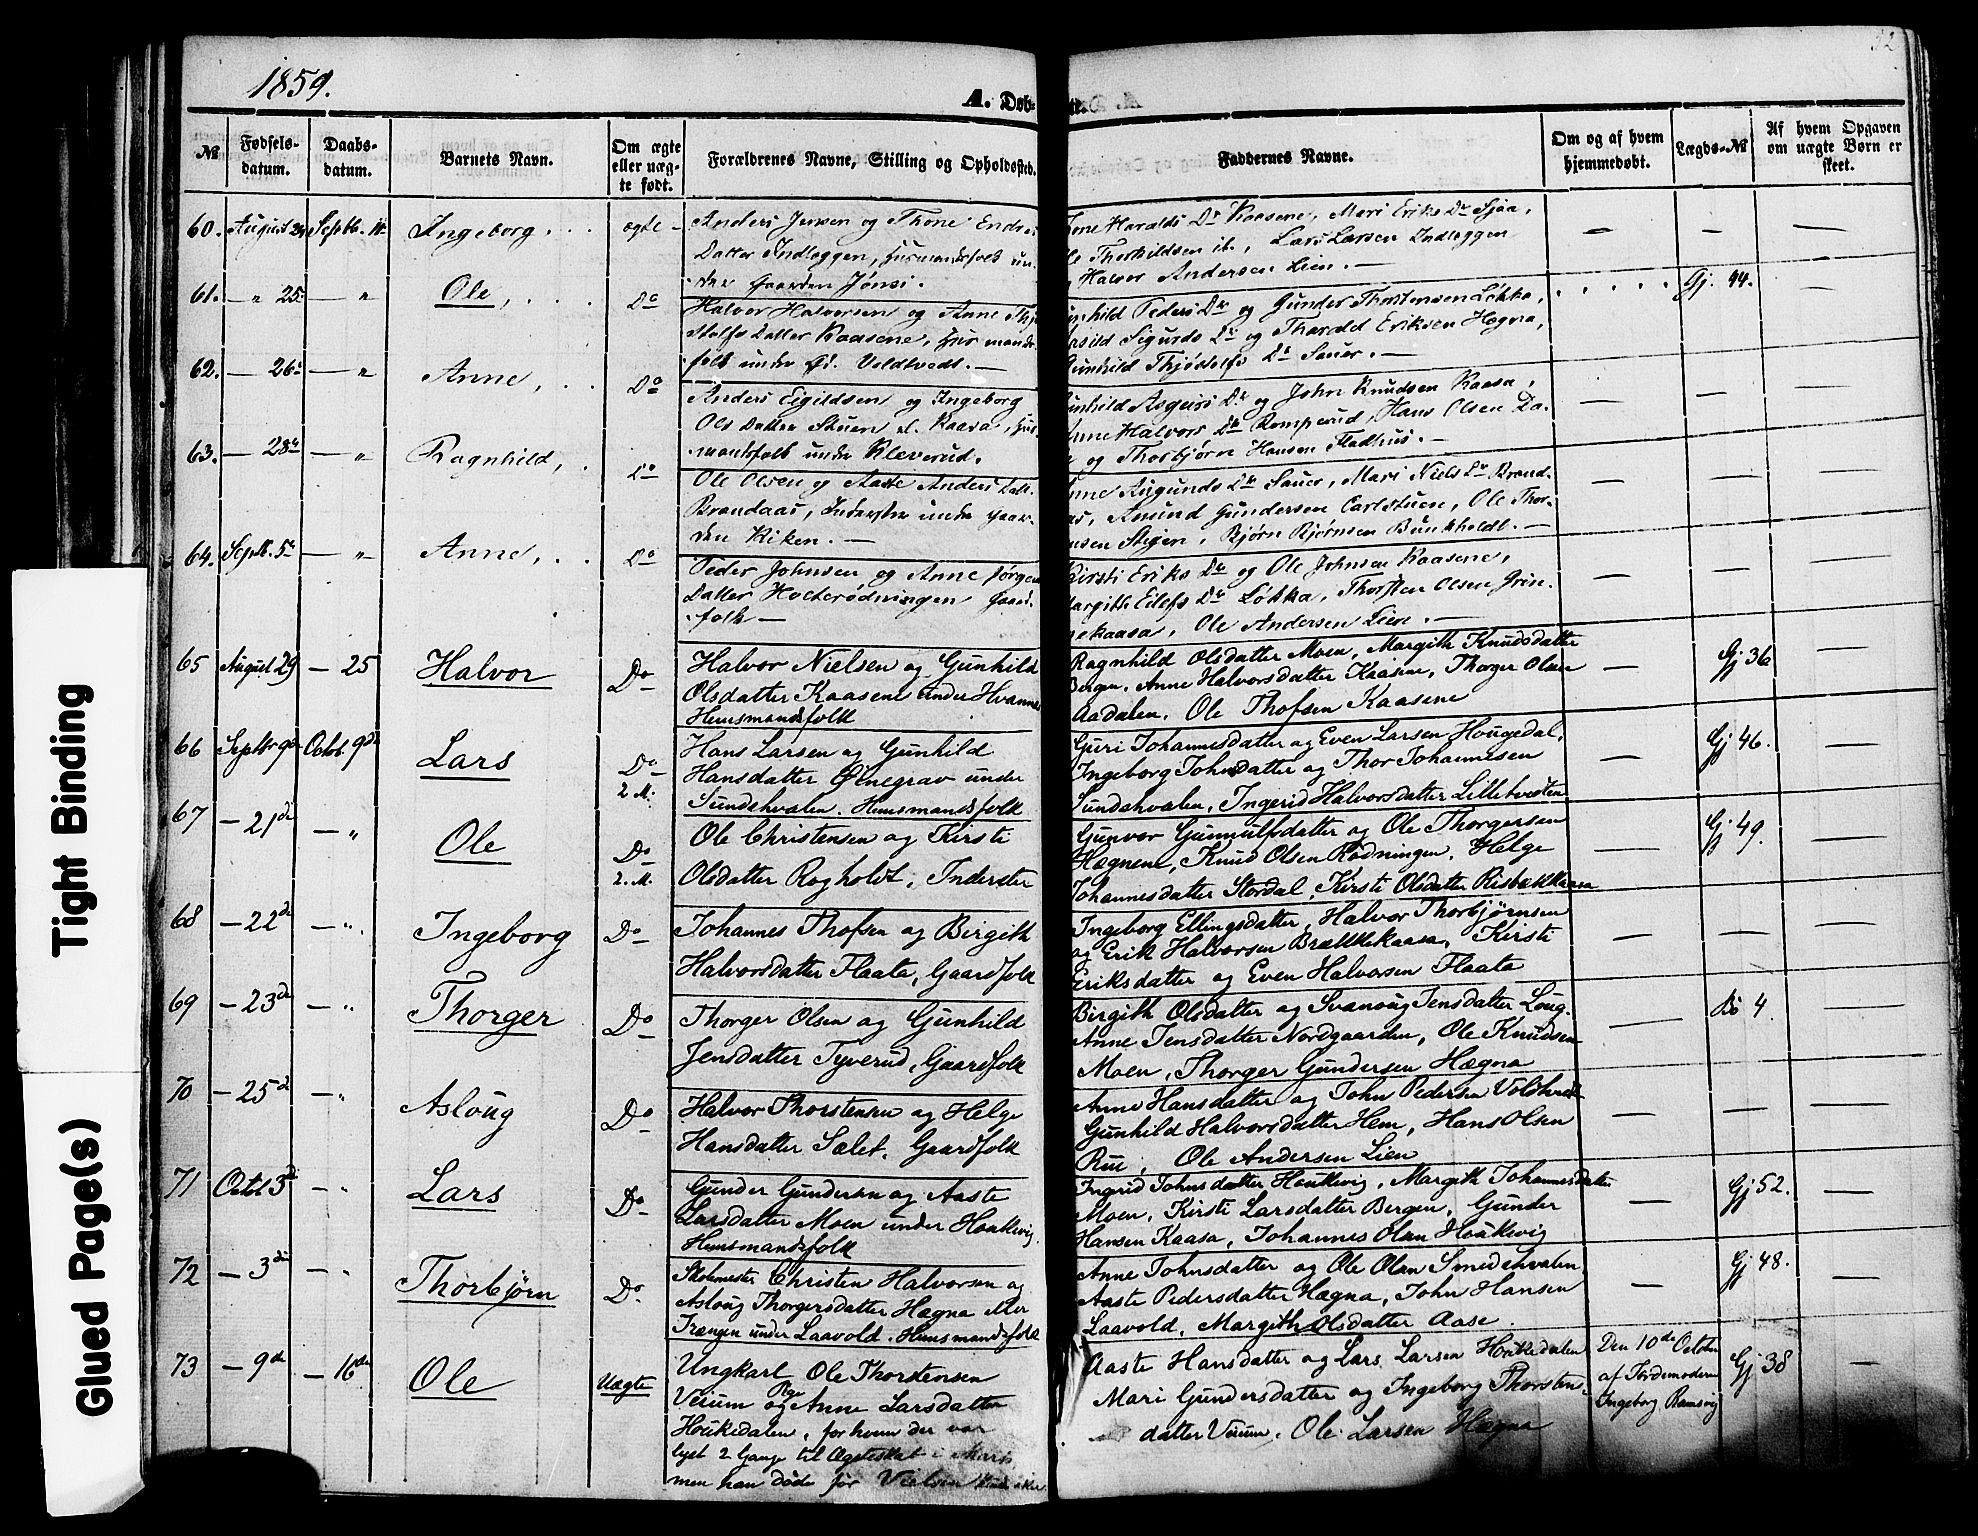 1859.
32
A. Døb-
te.
№
Fødsels-
datum.
Daabs-
datum.
Barnets Navn.
Om ægte
eller uæg-
te født.
Forældrenes Navne, Stilling og Opholdssted.
Faddernes Navne.
Om og af hvem
hjemmedøbt.
Lægds-№
Af hvem Opgaven
om uægte Børn er
skeet.
60. August Septb. Ingeborg ægte —
Anders Jensen og Thone Endres
Datter Indlæggen, Huusmandsfolk un-
der Gaarden Jønsi.
Haralds Dr Kaasene, Mari Eriks Dr Sjaa,
Thorkildsen ib., Lars Larsen Indlæggen
Halvor Andersen Lien. —
61. — " 25 — " Ole, Do Gj. 44. —
Halvor Halvorsen og Anne
Datter Kaasene, Huusmands-
folk under Gd. Voldtvedt. —
Peders Dr og Gunder Thorstensen Løkka,
Sigurds Dr og Tharald Eriksen Hægna,
Gunhild Thjødolfs Dr Sauer. —
62. — 26 — " Anne, Do — —
Anders Eigildsen og Ingeborg
Ols Datter Stuen el. Kaasa, Huus-
mandsfolk under Kleverud. —
Asgeirs Dr og John Knudsen Kaasa,
Anne Halvors Dr Romperud, Hans Olsen Da-
og Thorbjørn Hansen Fladhus. —
63. — 28 — " Ragnhild, Do — — —
Ole Olsen og Aaste Anders Datt.
Brandaas, Inderster under Gaar-
den Kiken. —
Aasgunds Dr Sauer, Mari Niels Dr Brand-
Amund Gundersen Carlstuen, Ole Thor-
Stegen, Bjørn Bjørnsen Bunkholdt. —
64. Septb. 5 — " Anne, Do — — —
Peder Johnsen og Anne Jørgen
Datter Holterødningen Gaard-
folk —
Kirsti Eriks Dr og Ole Johnsen Kaasene,
Margithe Eilefs Dr Løkka, Thorsten Olsen Grin-
Ole Andersen Liene. —
65 August 29 — 25 Halvor Do — Gj 36 —
Halvor Nielsen og Gunhild
Olsdatter Kaasene under Hvannes
Huusmandsfolk
Ragnhild Olsdatter Moen, Margith Knudsdatter
Bergen, Anne Halvorsdatter Kaasene, Thorger Olsen
Aadalen, Ole Thofsen Kaasene
66 Septbr 9de Octob. 9de Lars Do 2 M. — Gj 46. —
Hans Larsen og Gunhild
Hansdatter Ølnegrav under
Sundshvalen. Huusmandsfolk
Guri Johannesdatter og Even Larsen Hougedal,
Ingeborg Johnsdatter og Thor Johannesen
Sundshvalen, Ingerid Halvorsdatter Lilletvesten
67 — 21de — " Ole Do 2. M. — Gj 49. —
Ole Christensen og Kirsti
Olsdatter Rogholdt, Inderster
Gunvor Gunnulfsdatter og Ole Thorgersen
Hægnen, Knud Olsen Rodningen, Helge
Johannesdatter Stordal, Kirsti Olsdatter Risbækkaasa
68 — 22de — " Ingeborg Do — — —
Johannes Thofsen og Birgith
Halvorsdatter Flaata, Gaardfolk
Ingeborg Ellingsdatter, Halvor Thorbjørnsen
og Erik Halvorsen Brættekaasa, Kirsti
Eriksdatter og Even Halvorsen Flaata
69 — 23de — " Thorger Do — Bö 4. —
Thorger Olsen og Gunhild
Jensdatter Tyverud, Gaardfolk
Birgith Olsdatter og Svanoug Jensdatter Loug-
Anne Jensdatter Nordgaarden, Ole Knudsen
Moen, Thorger Gundersen Hægna
70 — 25de — " Asloug Do — — —
Halvor Thorstensen og Helge
Hansdatter Sælet, Gaardfolk
Anne Hansdatter og John Pedersen Voldtvedt
Gunhild Halvorsdatter Hem, Hans Olsen
Rue, Ole Andersen Lien
71 Octob 3de — " Lars Do — Gj 52. —
Gunder Gundersen og Aaste
Larsdatter Moen under Houkvig
Huusmandsfolk
Ingrid Johnsdatter Houkvig, Margith Johannesdatter
Moen, Kirsti Larsdatter Bergen, Gunder
Hansen Kaasa, Johannes Olsen Houkvig
72 — 3de — " Thorbjørn Do. — Gj 48. —
Skolemester Christen Halvorsen og
Asloug Thorgersdatter Hægna eller
Trængen under Laavold. Huusmandsfolk
Anne Johnsdatter og Ole Olsen Smedshvalen
Aaste Pedersdatter Hægna, John Hansen
Laavold, Margith Olsdatter Aase.
73 — 9de — 16de Ole Uægte Gj 38 —
Ungkarl Ole Thorstensen
Verum og Pge Anne Larsdatter
Houkedalen, for hvem der var
lyst 2 Gange til Ægteskab i Marts
men han døde før Vielsen
Aaste Hansdatter og Lars Larsen Houkedalen
Mari Gundersdatter og Ingeborg Thorstens-
datter Verum, Ole Larsen Hægna
Den 10de October
af Jordemoderen
Ingeborg Ramsvig
Tight Binding
Glued Page(s)